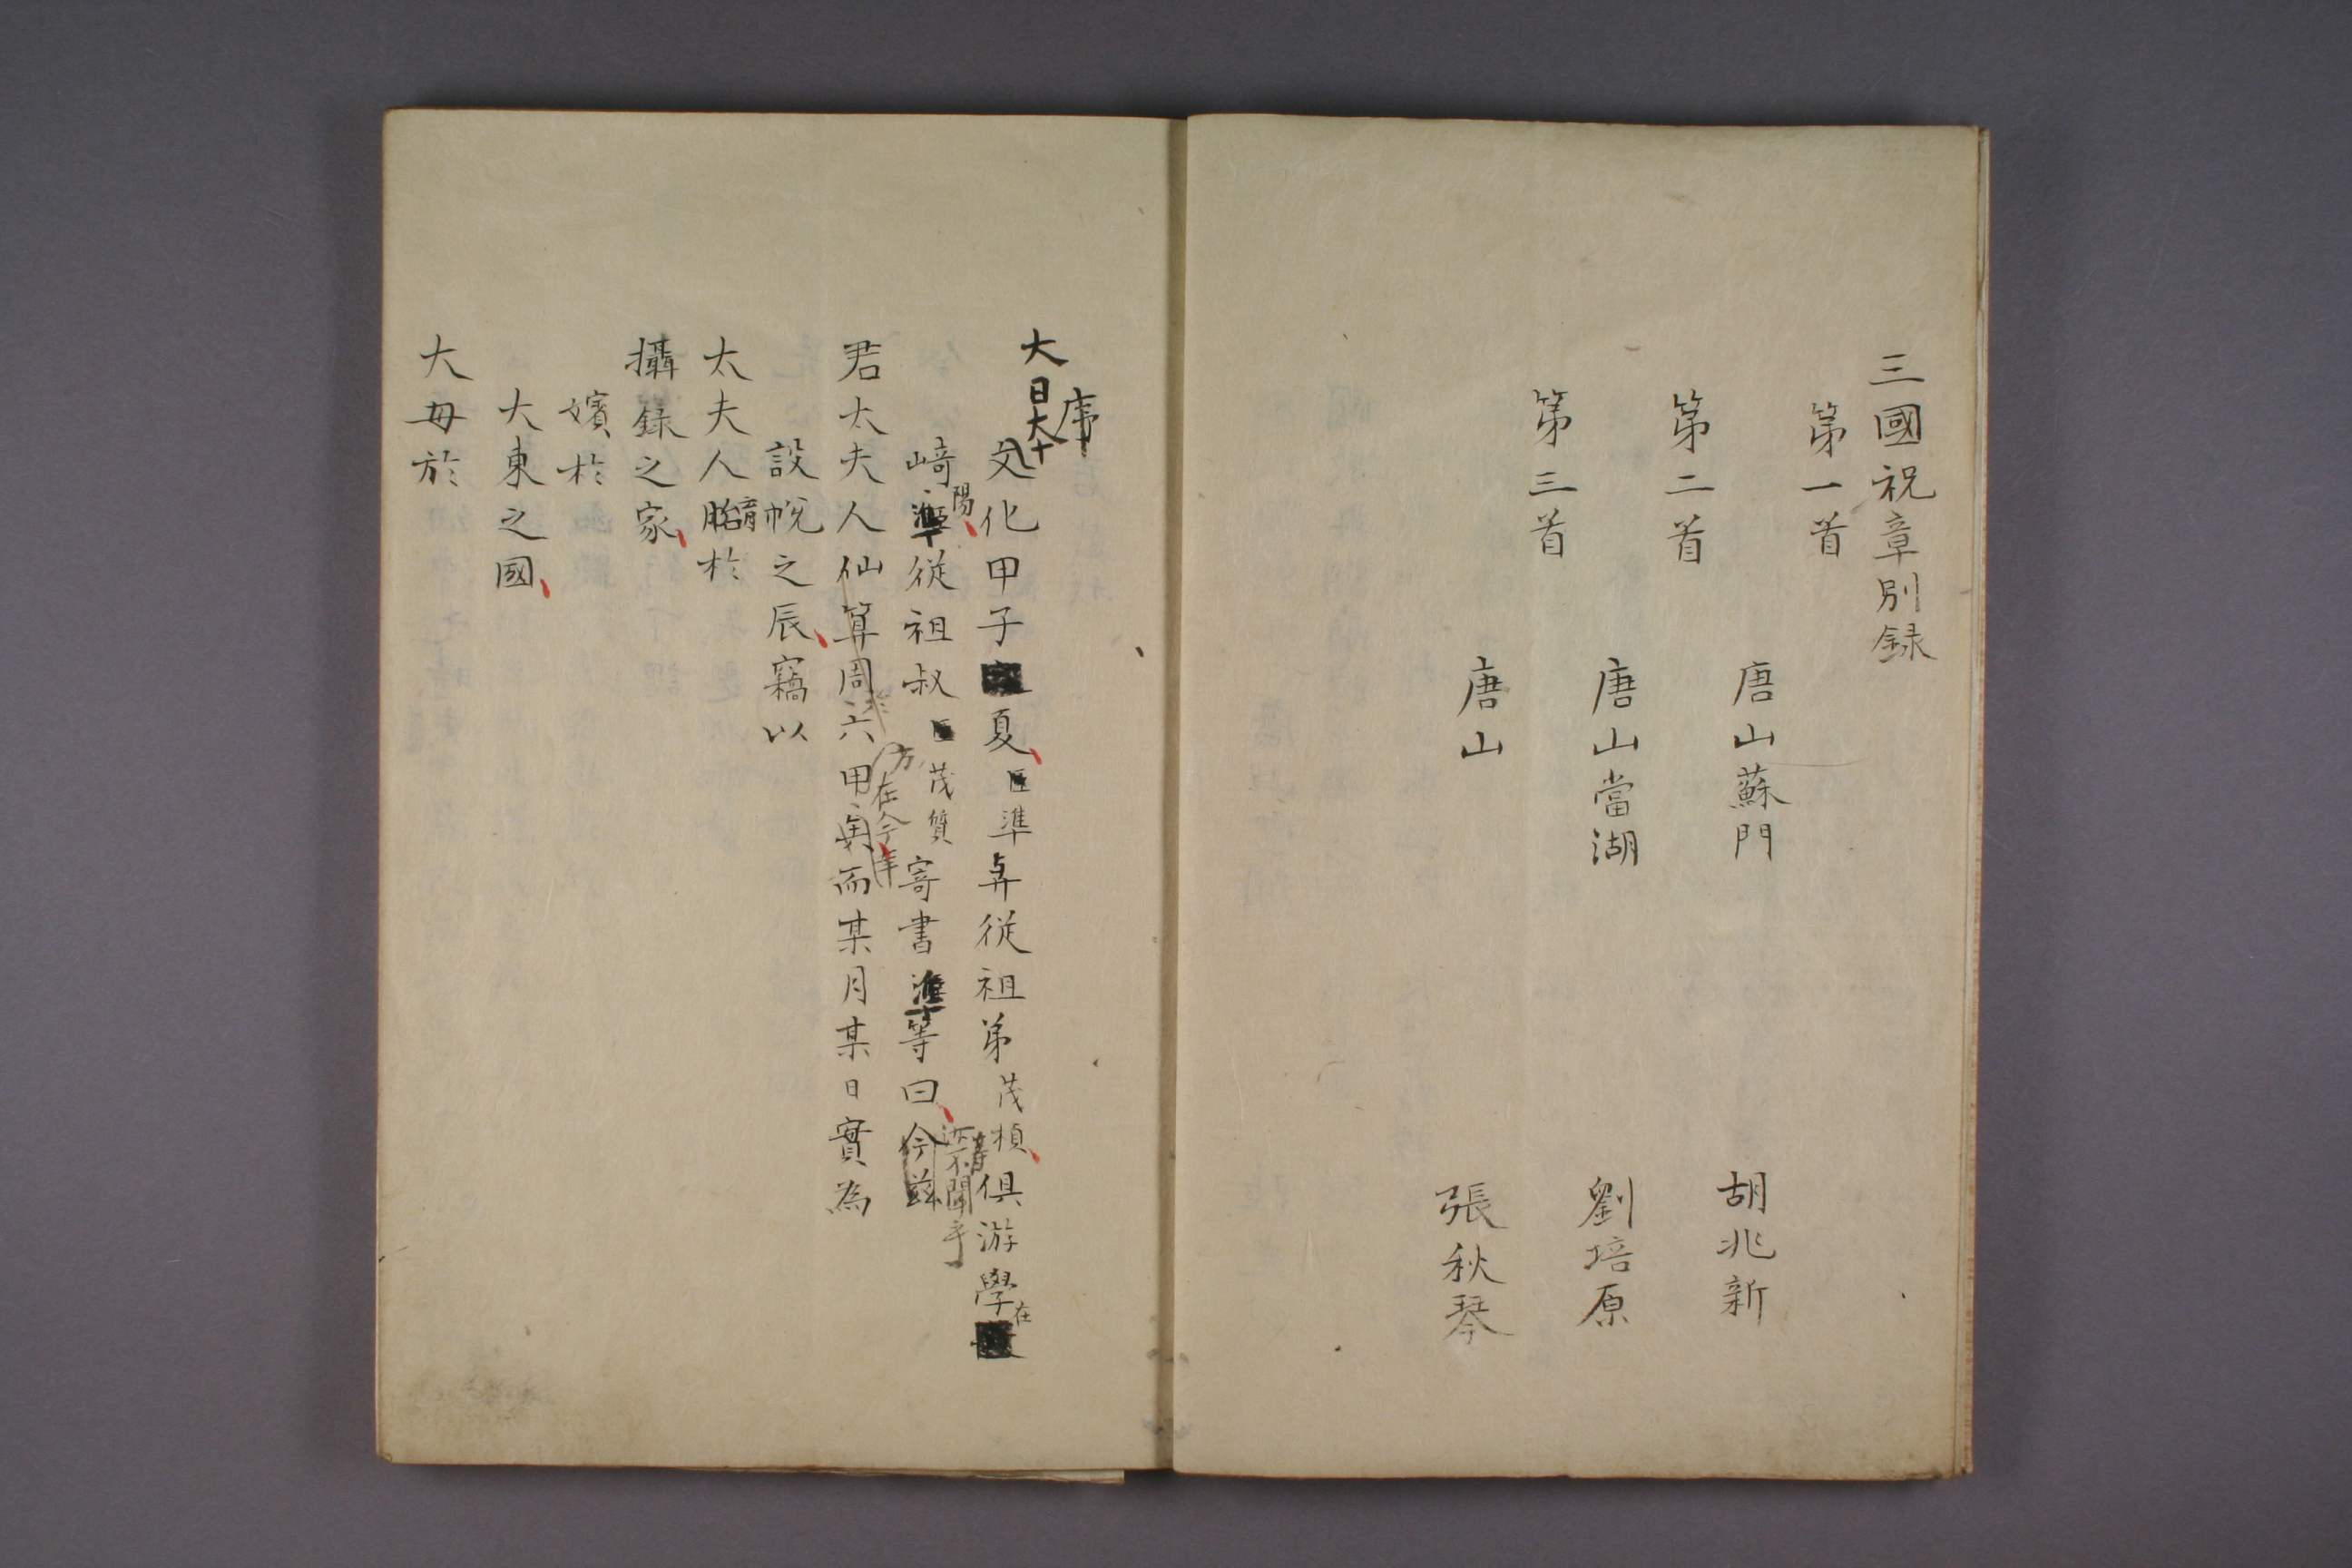 三國祝章別録
第一首
唐山蘇門 胡兆新
第二首
唐山當湖 劉培原
第三首
唐山 張秋琴
序
大日本
文化甲子夏準弁從祖弟茂楨俱游學在
崎陽從祖叔茂質寄書準等曰今茲
聞乎
方在今年
君太夫人仙算周六甲矣而某月某日實為
設帨之辰竊以
太夫人胎育於
攝録之家
嬪於
大東之國
大母於